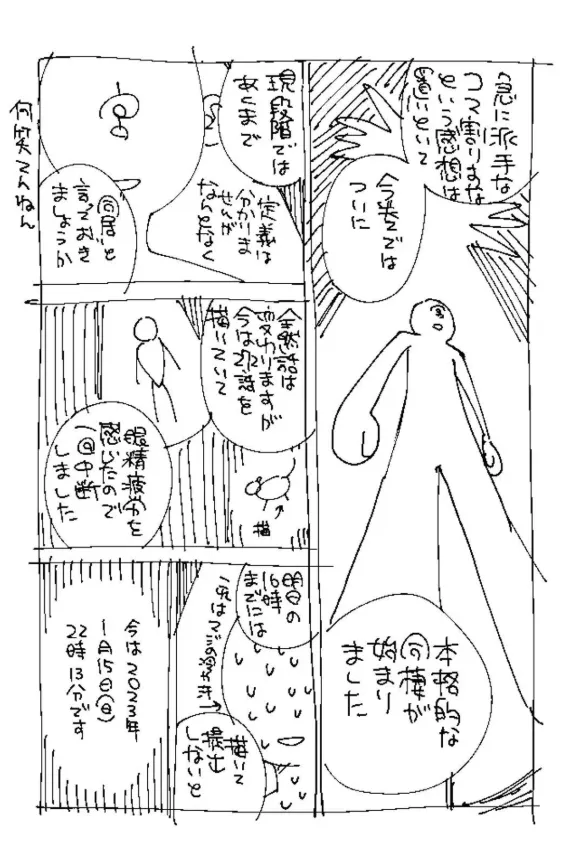 急に派手な
コマ割りすな
という感想は
置いといて
今巻では
ついに
本格的な
同棲が
始まり
ました
現段階では
あくまで
定義は
分かりま
せんが
なんとなく
“同居”と
言っておき
ましょうか
何笑てんねん
全然話は
変わりますが
今は22話を
描いていて
眼精疲労を
感じたので
一回中断
しました
猫
明日の
16時
までには
これはマジの冷や汗→
描いて
提出
しないと
今は2023年
1月15日(日)
22時13分です